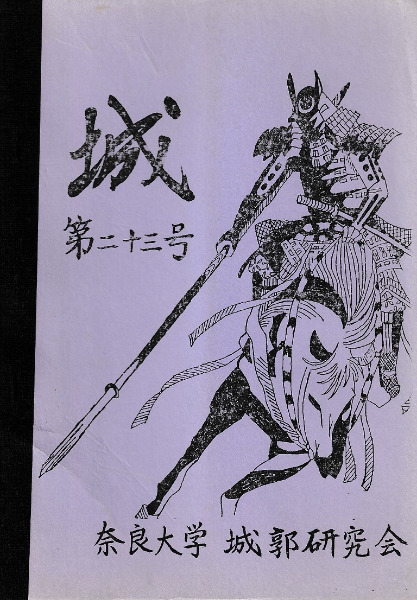 城
第二十三号
奈良大学 城郭研究会